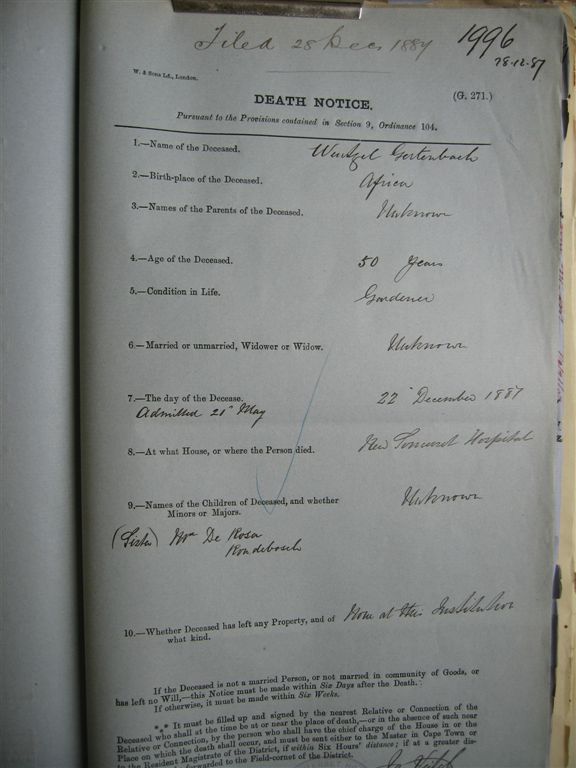 Filed 28 Dec 1887 1996
28.12.87
W. & Sons Ld., London.
(G. 271.)
DEATH NOTICE.
Pursuant to the Provisions contained in Section 9, Ordinance 104.
1.—Name of the Deceased. Wentzel Gertenbach
2.—Birth-place of the Deceased. Africa
3.—Names of the Parents of the Deceased. Unknown
4.—Age of the Deceased. 50 Years
5.—Condition in Life. Gardener
6.—Married or unmarried, Widower or Widow. Unknown
7.—The day of the Decease. 22 December 1887
Admitted 21st May
8.—At what House, or where the Person died. New Somerset Hospital
9.—Names of the Children of Deceased, and whether Unknown
Minors or Majors.
(Sister) Mrs De Rosa
Rondebosch
10.—Whether Deceased has left any Property, and of None at this Institution
what kind.
If the Deceased is not a married Person, or not married in community of Goods, or
has left no Will,—this Notice must be made within Six Days after the Death.
If otherwise, it must be made within Six Weeks.
*** It must be filled up and signed by the nearest Relative or Connection of the
Deceased who shall at the time be at or near the place of death,—or in the absence of such near
Relative or Connection, by the person who shall have the chief charge of the House in or the
Place on which the death shall occur, and must be sent either to the Master in Cape Town or
to the Resident Magistrate of the District, if within Six Hours' distance; if at a greater dis-
forwarded to the Field-cornet of the District.